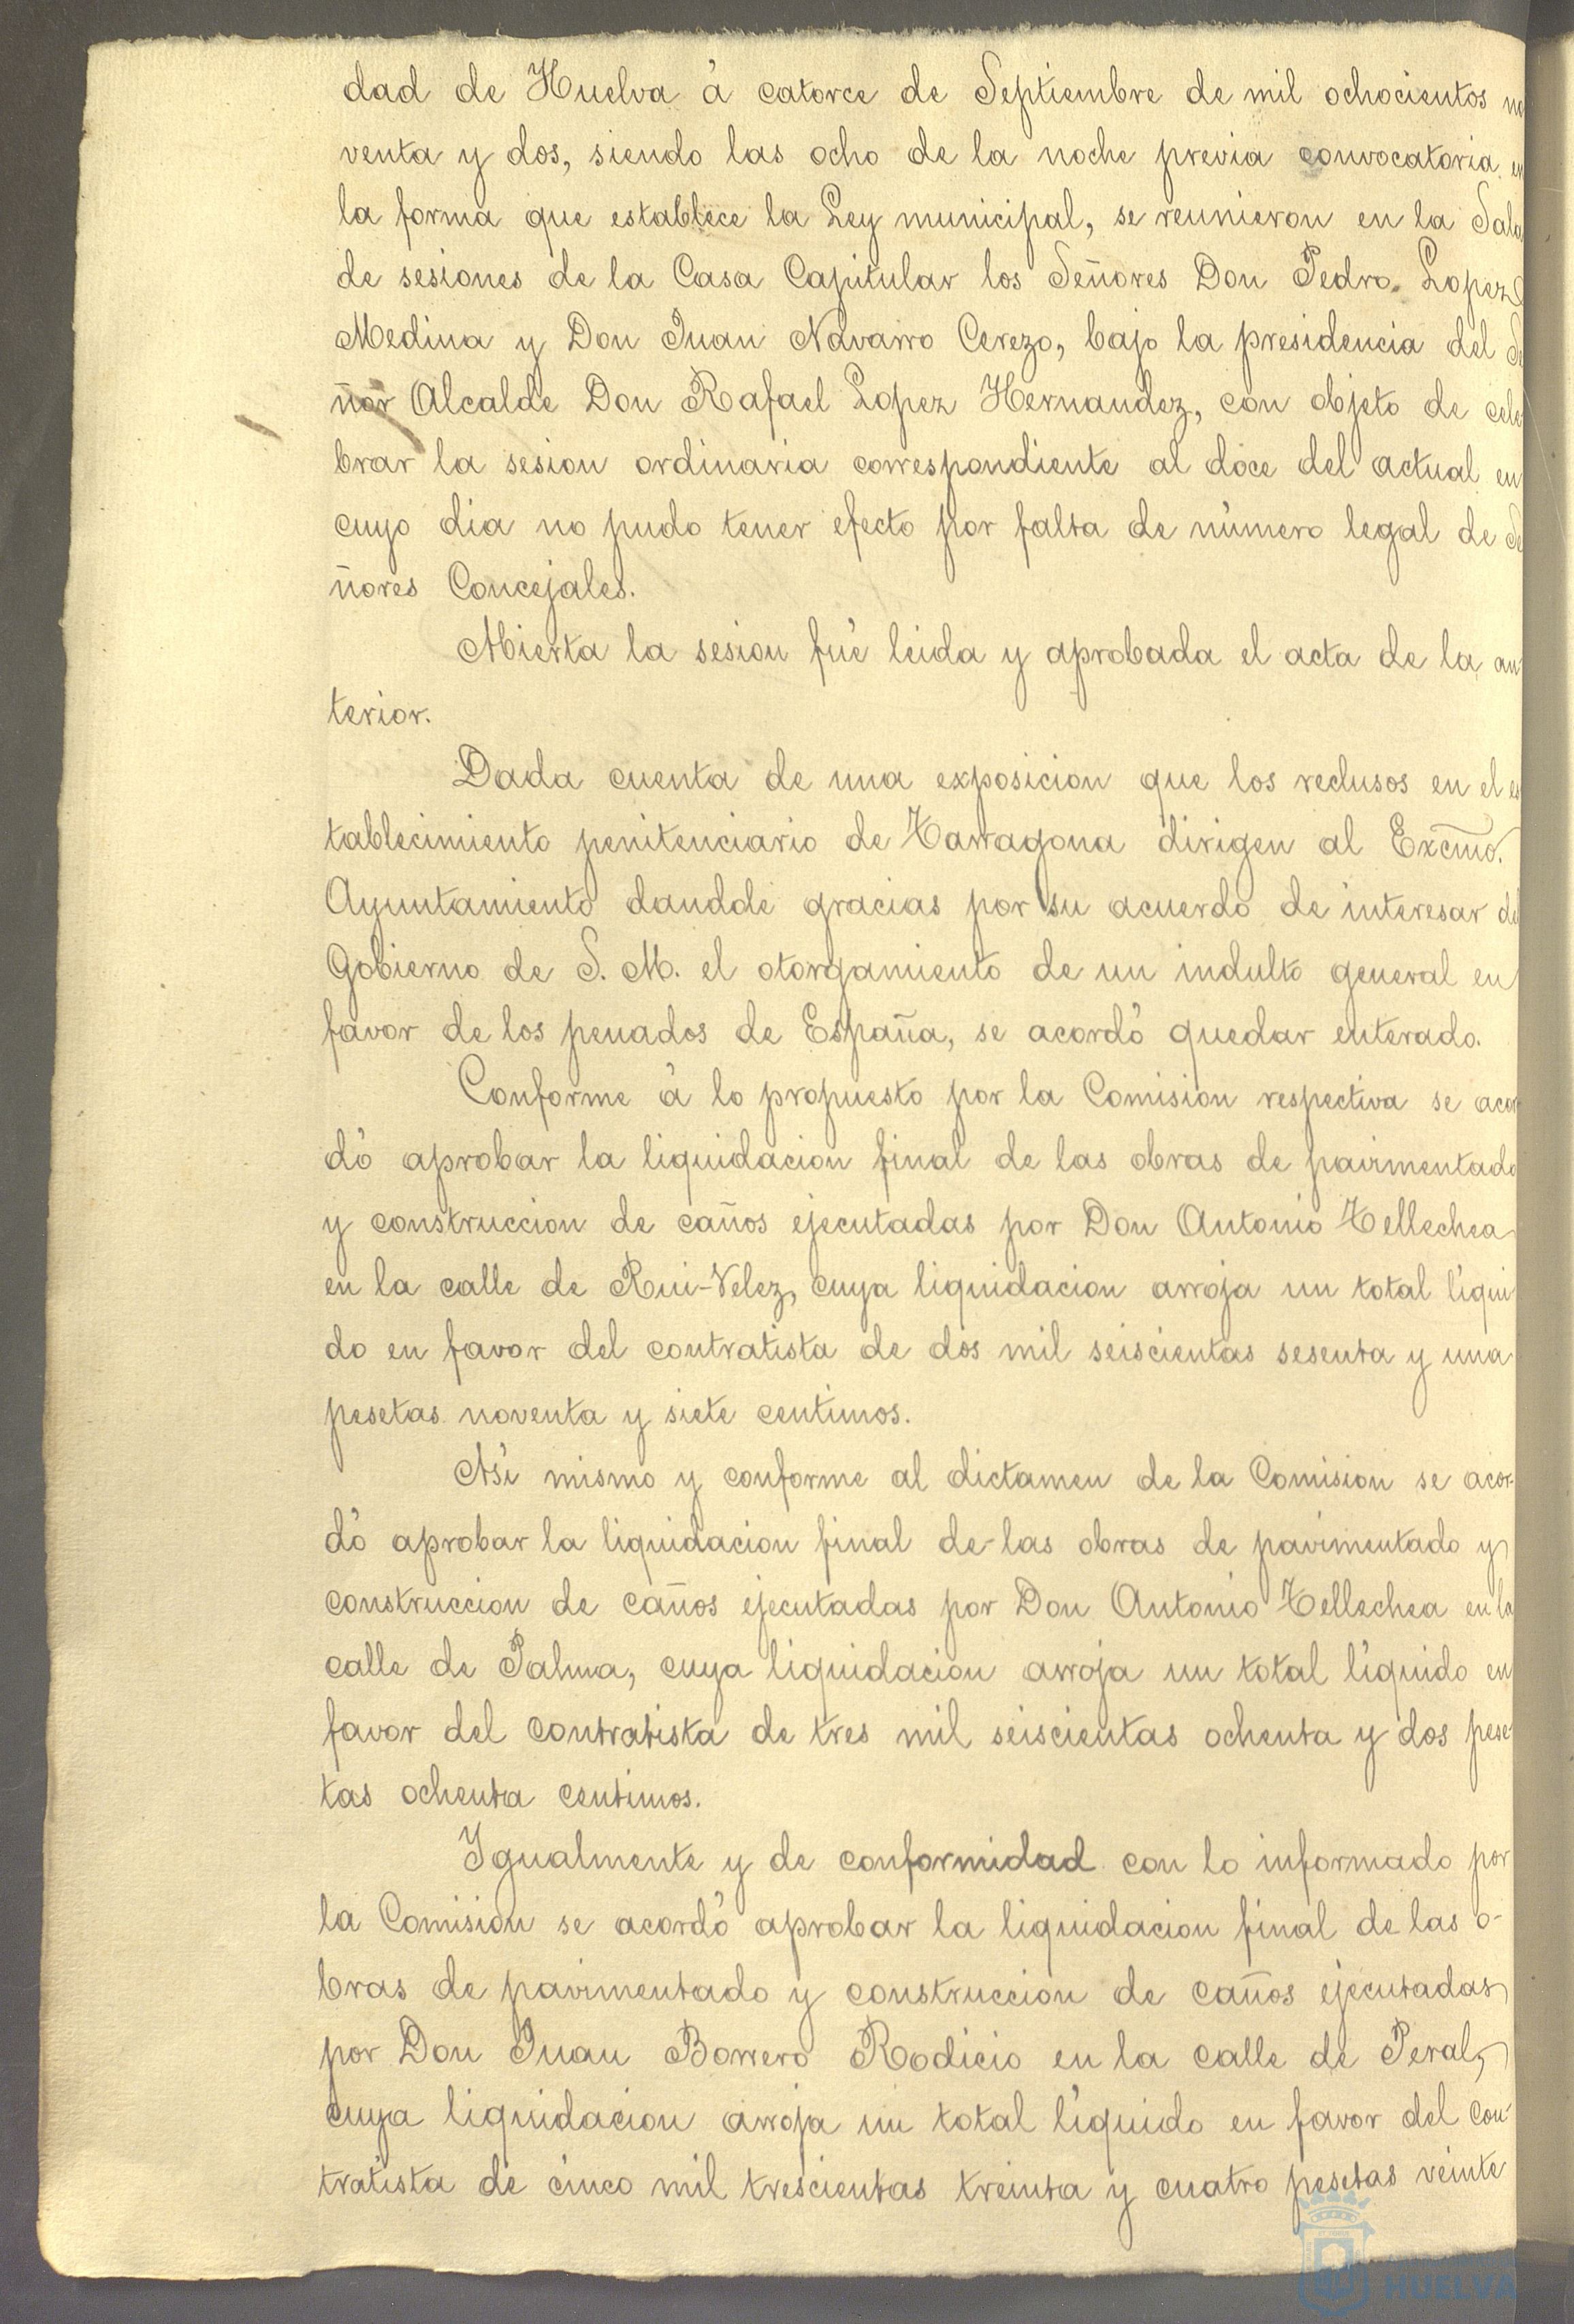 dad de Huelva á catorce de Septiembre de mil ochocientos no
venta y dos, siendo las ocho de la noche previa convocatoria en
la forma que establece la Ley municipal, se reunieron en la Sala
de sesiones de la Casa Capitular los Señores Don Pedro Lopez
Medina y Don Juan Navarro Cerezo, bajo la presidencia del Se
ñor Alcalde Don Rafael Lopez Hernandez, con objeto de cele
brar la sesion ordinaria correspondiente al doce del actual en
cuyo dia no pudo tener efecto por falta de número legal de Se
ñores Concejales.
Abierta la sesion fué leida y aprobada el acta de la an
terior.
Dada cuenta de una exposicion que los reclusos en el es
tablecimiento penitenciario de Tarragona dirigen al Excmo.
Ayuntamiento dandole gracias por su acuerdo de interesar del
Gobierno de S. M. el otorgamiento de un indulto general en
favor de los penados de España, se acordó quedar enterado.
Conforme á lo propuesto por la Comision respectiva se acor
dó aprobar la liquidacion final de las obras de pavimentado
y construccion de caños ejecutadas por Don Antonio Tellechea
en la calle de Rui-Velez, cuya liquidacion arroja un total líqui
do en favor del contratista de dos mil seiscientas sesenta y una
pesetas noventa y siete centimos.
Así mismo y conforme al dictamen de la Comision se acor-
dó aprobar la liquidacion final de las obras de pavimentado y
construccion de caños ejecutadas por Don Antonio Tellechea en la
calle de Palma, cuya liquidacion arroja un total líquido en
favor del contratista de tres mil seiscientas ochenta y dos pese
tas ochenta centimos.
Igualmente y de conformidad con lo informado por
la Comision se acordó aprobar la liquidacion final de las o-
bras de pavimentado y construccion de caños ejecutadas
por Don Juan Borrero Rodicio en la calle de Peral,
cuya liquidacion arroja un total líquido en favor del con-
tratista de cinco mil trescientas treinta y cuatro pesetas veinte
HUELVA